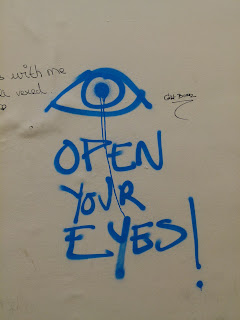 with me
OPEN
YOUR
EYES!